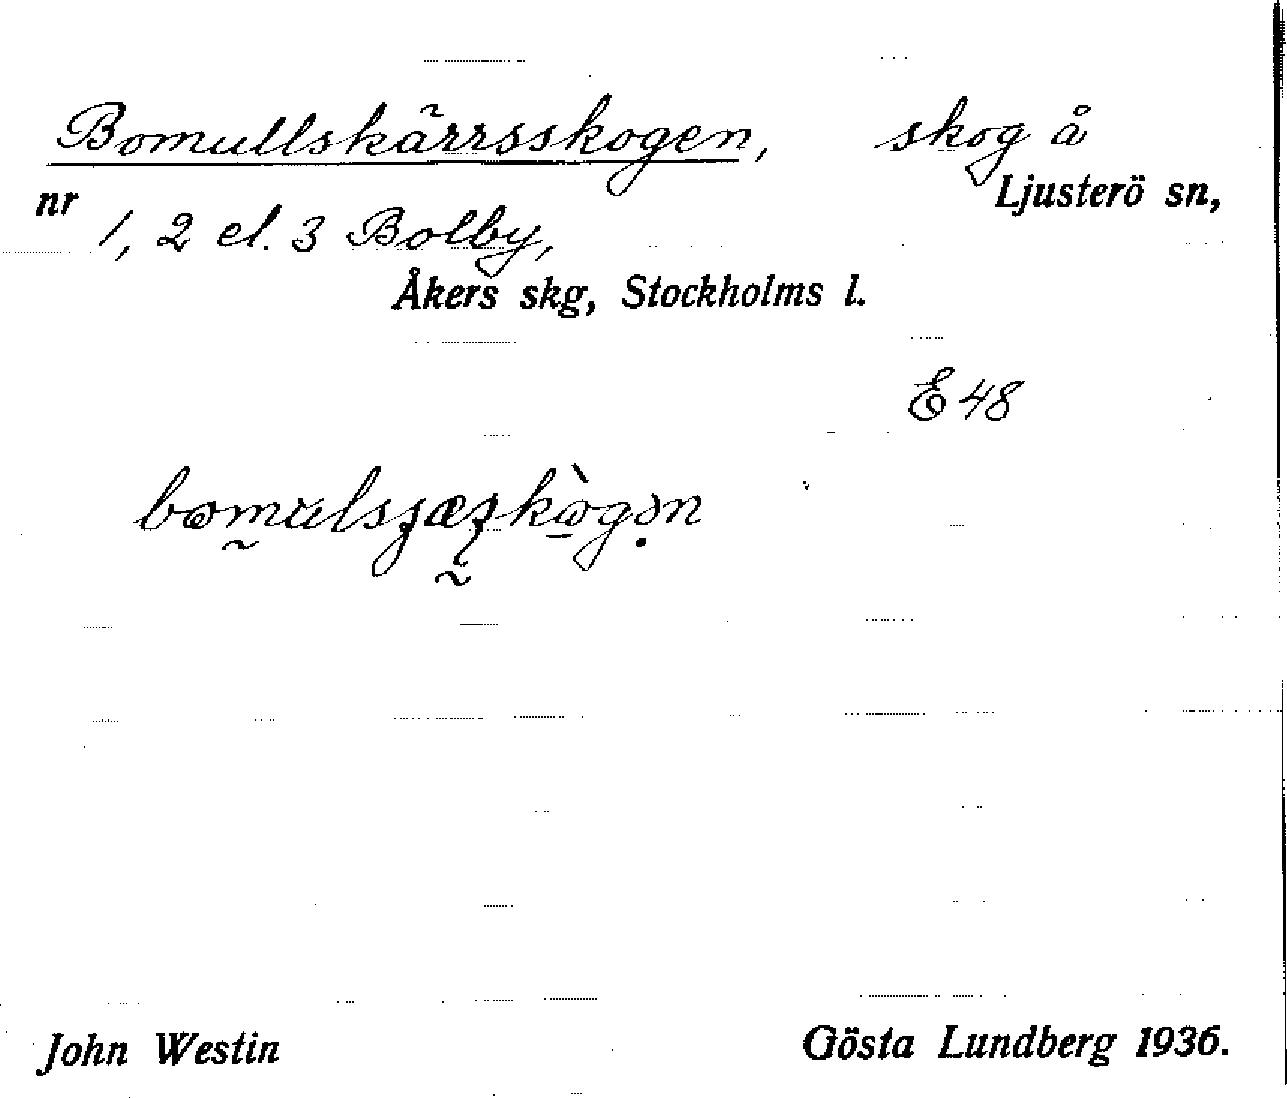 Bomullskärrsskogen, skog å
nr Ljusterö sn,
1, 2 el. 3 Bolby,
Åkers skg, Stockholms l.
E 48
John Westin Gösta Lundberg 1936.